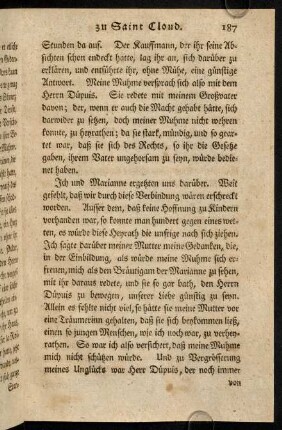 zu Saint Cloud. 187
Stunden da auf. Der Kauffmann, der ihr seine Ab-
sichten schon endeckt hatte, lag ihr an, sich darüber zu
erklären, und entführte ihr, ohne Mühe, eine günstige
Antwort. Meine Muhme versprach sich also mit dem
Herrn Düpuis. Sie redete mit meinem Großvater
davon; der, wenn er auch die Macht gehabt hätte, sich
darwider zu setzen, doch meiner Muhme nicht wehren
konnte, zu heyrathen; da sie stark, mündig, und so gear-
tet war, daß sie sich des Rechts, so ihr die Gesetze
gaben, ihrem Vater ungehorsam zu seyn, würde bedie-
net haben.
Ich und Marianne ergetzten uns darüber. Weit
gefehlt, daß wir durch diese Verbindung wären erschreckt
worden. Ausser dem, daß keine Hoffnung zu Kindern
vorhanden war, so konnte man hundert gegen eines wet-
ten, es würde diese Heyrath die unsrige nach sich ziehen.
Ich sagte darüber meiner Mutter meine Gedanken, die,
in der Einbildung, als würde meine Muhme sich er-
freuen, mich als den Bräutigam der Marianne zu sehen,
mit ihr daraus redete, und sie so gar bath, den Herrn
Düpuis zu bewegen, unserer Liebe günstig zu seyn.
Allein es fehlte nicht viel, so hätte sie meine Mutter vor
eine Träumerinn gehalten, daß sie sich beykommen ließ,
einen so jungen Menschen, wie ich noch war, zu verhey-
rathen. So war ich also versichert, daß meine Muhme
mich nicht schützen würde. Und zu Vergrösserung
meines Unglücks war Herr Düpuis, der noch immer
von